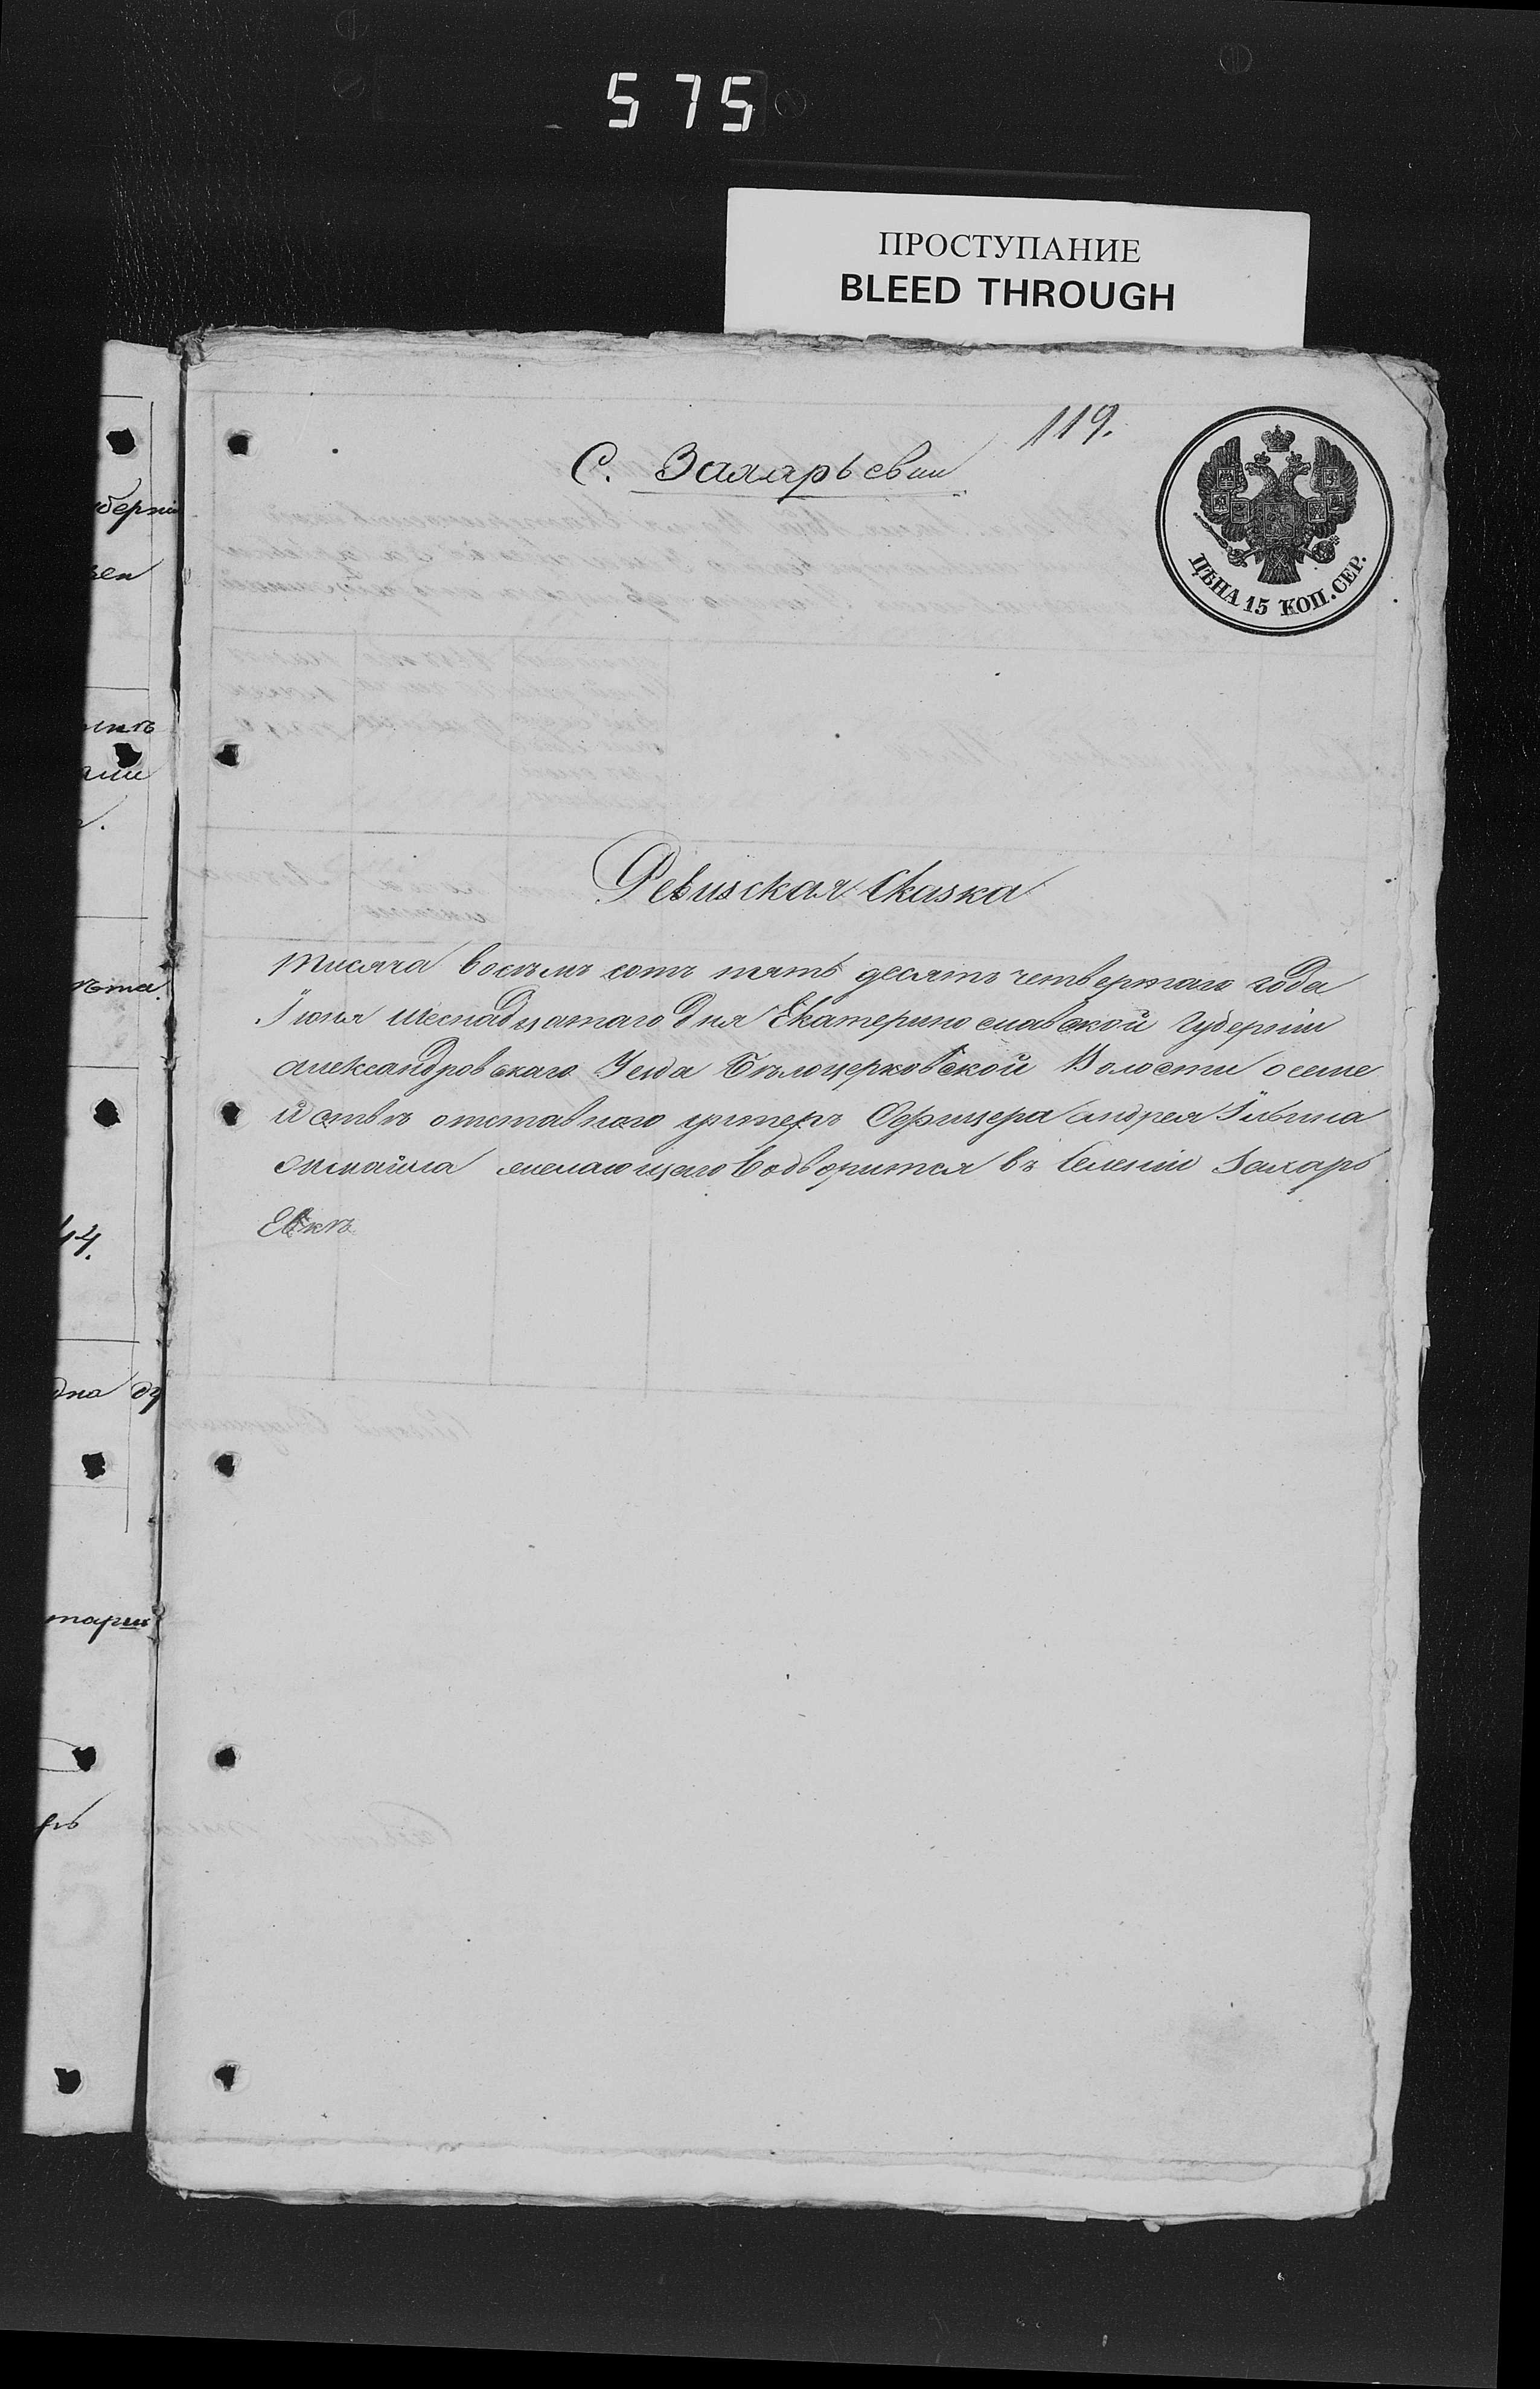 575
ПРОСТУПАНИЕ
BLEED THROUGH
119.
С. Захарьевки
ЦѢНА 15 КОП. СЕР.
Ревиская Сказка
тисяча восѣмъ сотъ пять десятъ четвертаго года
Іюня шеснадцатаго дня Екатеринославской Губерніи
Александровскаго Уезда Бѣлоцерковской Волости осеме
йствѣ отставнаго унтеръ Офицера андрея Ильина
желающаго водворится въ Селеніи Захарь
Евкѣ
44.
дна ду